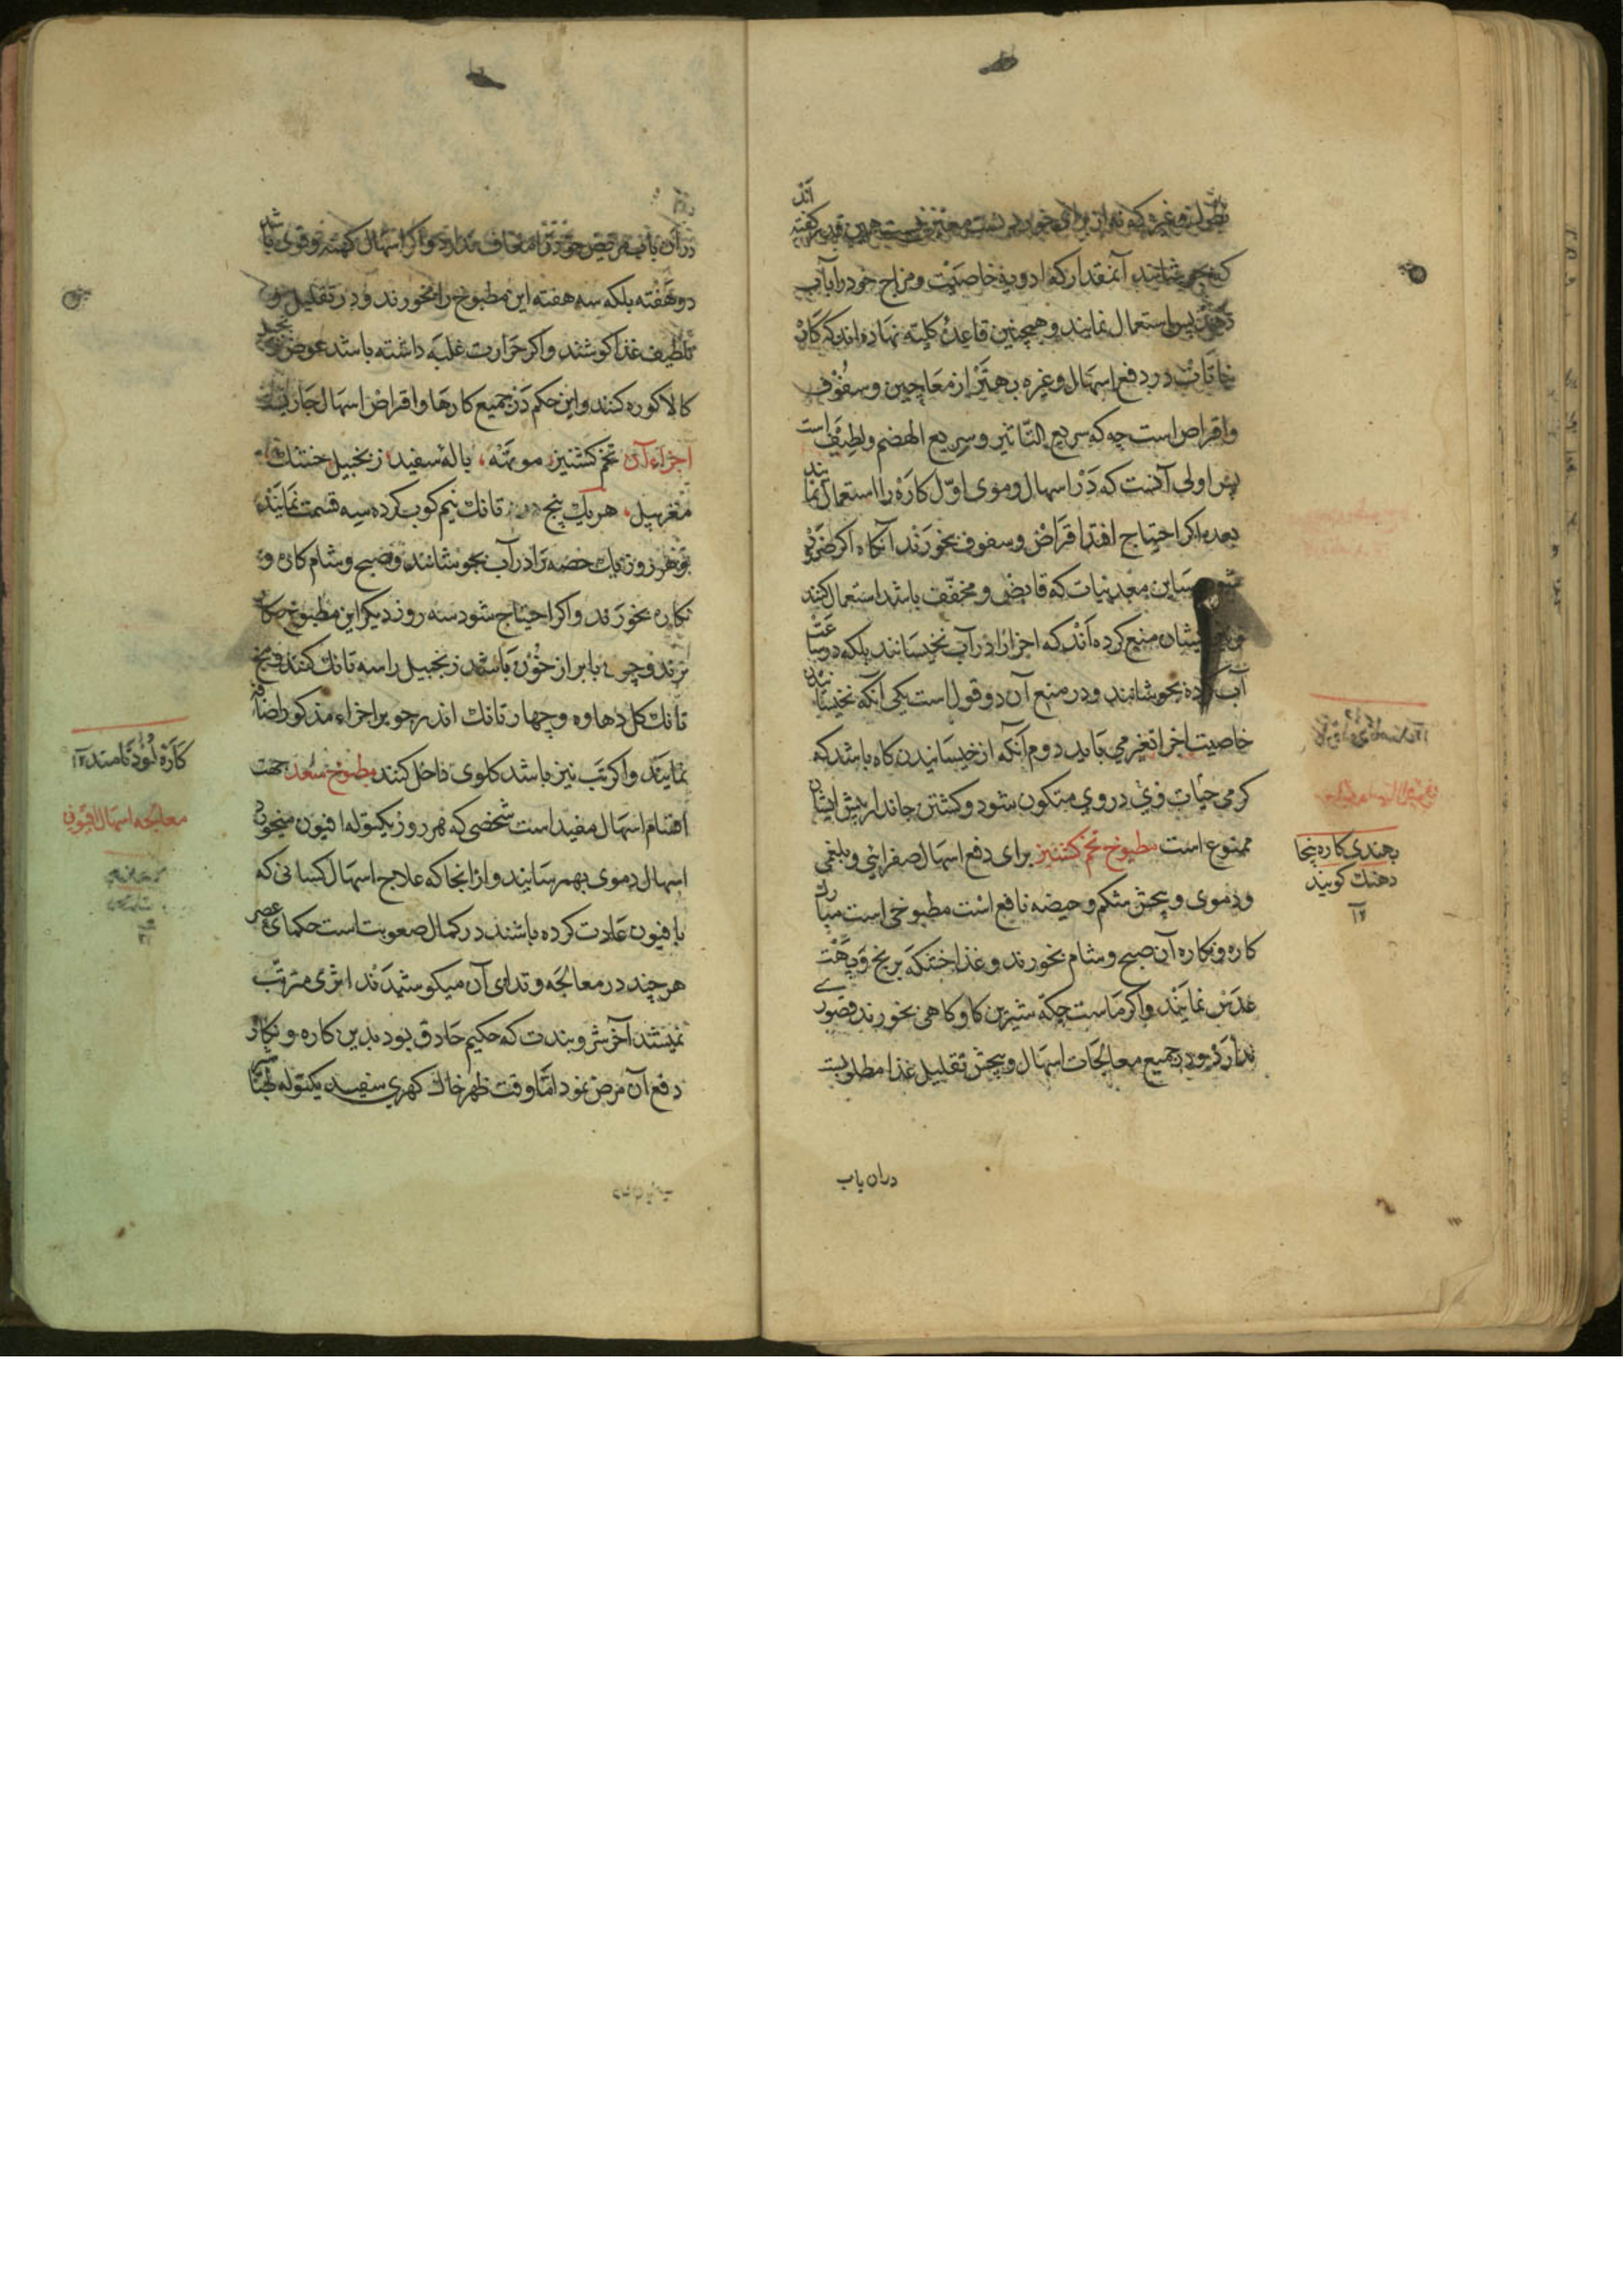 که بجوشانند آنمقدار که ادویه خاصیت و مزاج خود را بآب
دهد پس استعمال نمایند و همچنین قاعدهٔ کلیه نهاده‌اند که کاره
جات در دفع اسهال و غیره بهتر از معاجین و سفوف
و اقراص است چه که سریع التاثیر و سریع الهضم و لطیف است
پس اولی آنست که در اسهال دموی اول کاره را استعمال نمایند
بعده اگر احتیاج افتد اقراض و سفوف بخورند آنکاه اگر ضرور
شود پس این معدنیات که قابض و مخفف باشد استعمال کنند
ایشان منع کرده‌اند که اجزا را در آب نخیسانند بلکه دو ساعت
آب بجوشانند و در منع آن دو قول است یکی آنکه نخیسانیدن
خاصیت اجزا تغیر می یابد دوم آنکه از خیسانیدن کاه باشد که
کرمی حیات وی در وی متکون شود و کشتن جاندار پیش ایشان
ممنوع است مطبوخ تخم کشنیز برای دفع اسهال صفرایی و بلغمی
و دموی و پیچش شکم و حیضه نافع است مطبوخی است مبارک
کاره و نکاره آن صبح و شام بخورند و غذا خشکه برنج و پهت
عدس نمایند و اگر ماست چکه شیرین کاو کاهی بخورند قصوری
ندارد و در جمیع معالجات اسهال و پیچش تقلیل غذا مطلوبست
دران باب
بهندی کاره بنجا
دهنک کویند
۱۲
دران باب مریض خود را معاف ندارد و اگر اسهال کهنه و قوی باشد
دو هفته بلکه سه هفته این مطبوخ را بخورند و در تقلیل و
تلطیف غذا کوشند و اگر حرارت غلبه داشته باشد عوض زنجبیل
کالا کوره کنند و این حکم در جمیع کارها و اقراض اسهال جاریست
اجزاء آن تخم کشنیز موتهه بالهٔ سفید زنجبیل خشک
مغز بیل هر یک پنج تانک نیم کوب کرده سه قسمت نمایند
و هر روز یک حصه را در آب بجوشانند و صبح و شام کاره و
نکاره بخورند و اگر احتیاج شود سه روز دیکر این مطبوخ بکار
برند و چون بابر از خون باشد زنجبیل را سه تانک کنند و پنج
تانک کل دهاوه و چهار تانک اندرجو بر اجزاء مذکور اضافه
نمایند و اگر تب نیز باشد کلوی داخل کنند مطبوخ سعد جهت
اقسام اسهال مفید است شخصی که هر روز یکتوله افیون میخورد
اسهال دموی بهمرسانید و ازانجا که علاج اسهال کسانی که
بافیون عادت کرده باشند در کمال صعوبت است حکمای عصر
هر چند در معالجه و تداوی آن میکوشیدند اثری مترتب
نمیشد آخر شروبندت که حکیم حاذق بود بدین کاره و نکاره
دفع آن مرض نمود اما وقت ظهر خاک کهری سفید یکتوله
معالجه اسهال افیونی